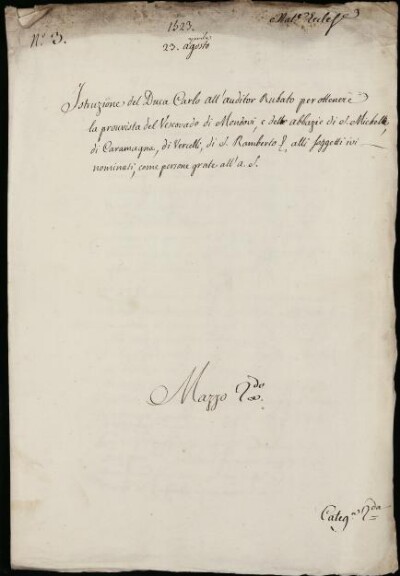 N.° 3.
1523.
23. agosto
Mat.e Eccles.e 3
Istruzione del Duca Carlo all'auditor Rubato per ottenere
la provvista del Vescovado di Mondovi, e delle abbazie di S. Michele,
di Caramagna, di Vercelli, di S. Ramberto &. alli soggetti ivi
nominati, come persone grate all'a S.
Mazzo 2.do
Categ.a 2.da